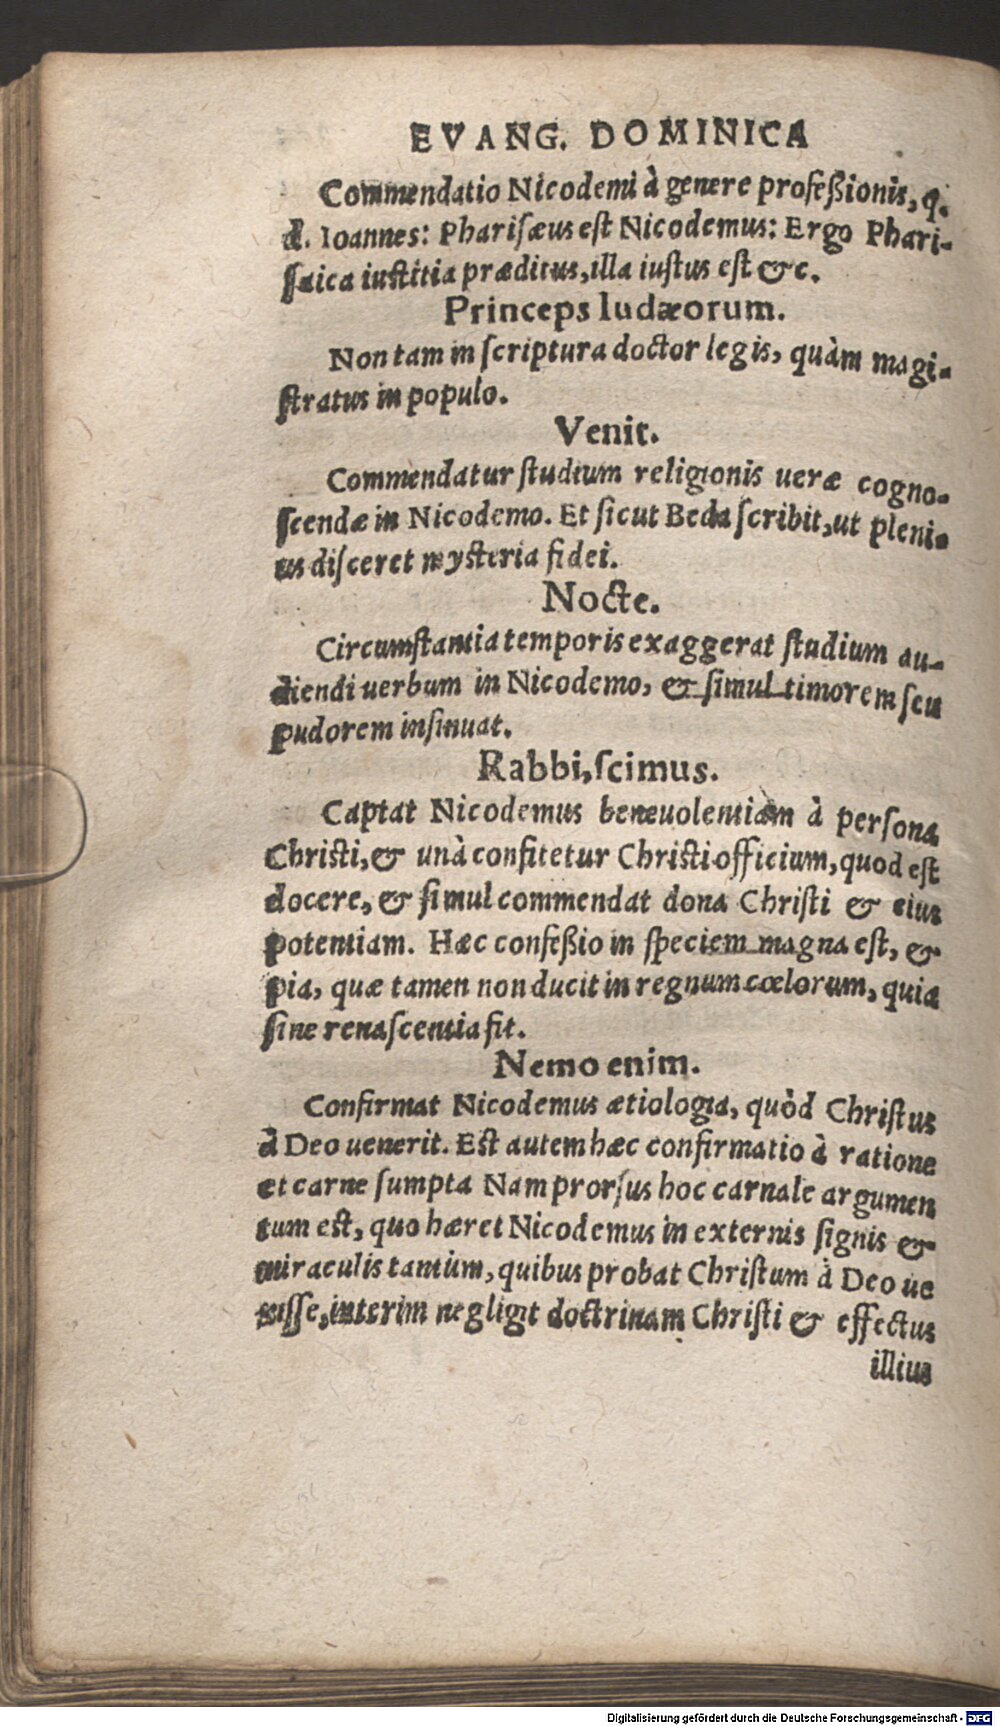 EVANG. DOMINICA
Commendatio Nicodemi à genere profeßionis, q.
d. Ioannes: Phariſæus eſt Nicodemus: Ergo Phari-
ſaica iuſtitia præditus, illa iuſtus eſt &c.
Princeps Iudæorum.
Non tam in ſcriptura doctor legis, quàm magi-
ſtratus in populo.
Venit.
Commendatur ſtudium religionis ueræ cogno-
ſcendæ in Nicodemo. Et ſicut Beda ſcribit, ut pleni-
us diſceret myſteria fidei.
Nocte.
Circumſtantia temporis exaggerat ſtudium au-
diendi uerbum in Nicodemo, & ſimul timorem ſeu
pudorem inſinuat.
Rabbi, ſcimus.
Captat Nicodemus beneuolentiam à perſona
Chriſti, & unà confitetur Chriſti officium, quod eſt
docere, & ſimul commendat dona Chriſti & eius
potentiam. Hæc confeßio in ſpeciem magna eſt, &
pia, quæ tamen non ducit in regnum cœlorum, quia
ſine renaſcentia fit.
Nemo enim.
Confirmat Nicodemus ætiologia, quòd Chriſtus
à Deo uenerit. Eſt autem hæc confirmatio à ratione
et carne ſumpta Nam prorſus hoc carnale argumen
tum eſt, quo hæret Nicodemus in externis ſignis &
miraculis tantùm, quibus probat Chriſtum à Deo ue
niſſe, interim negligit doctrinam Chriſti & effectus
illius
Digitalisierung gefördert durch die Deutsche Forschungsgemeinschaft - DFG